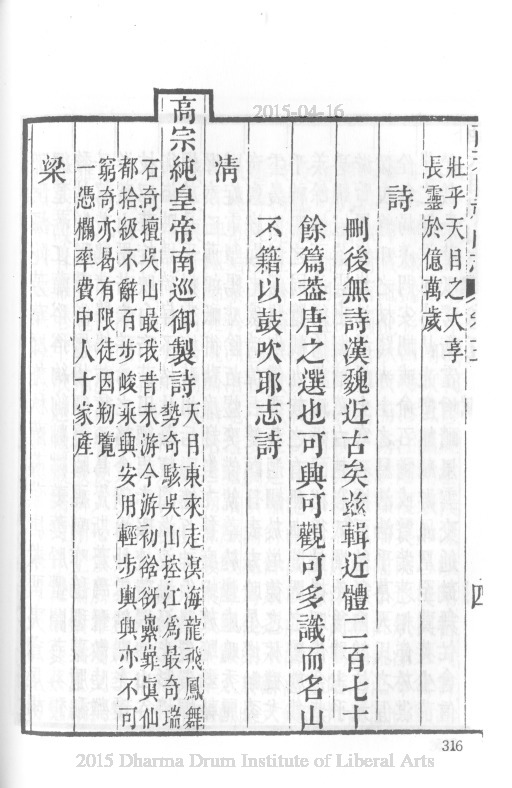 2015-04-16
壯乎天目之大享
長靈於億萬歲
詩
刪後無詩漢魏近古矣茲輯近體二百七十
餘篇葢唐之選也可興可觀可多識而名山
不籍以鼓吹耶志詩
清
高宗純皇帝南巡御製詩天目東來走溟海龍飛鳳舞
勢奇駭吳山控江為最奇瑞
石奇擅吳山最我昔未游今游初谽谺櫐嶵眞仙
都拾級不辭百步峻乘輿安用輕步輿輿亦不可
窮奇亦曷有限徒因剏覽
憑欄率費中人十家產
梁
四
316
2015 Dharma Drum Institute of Liberal Arts